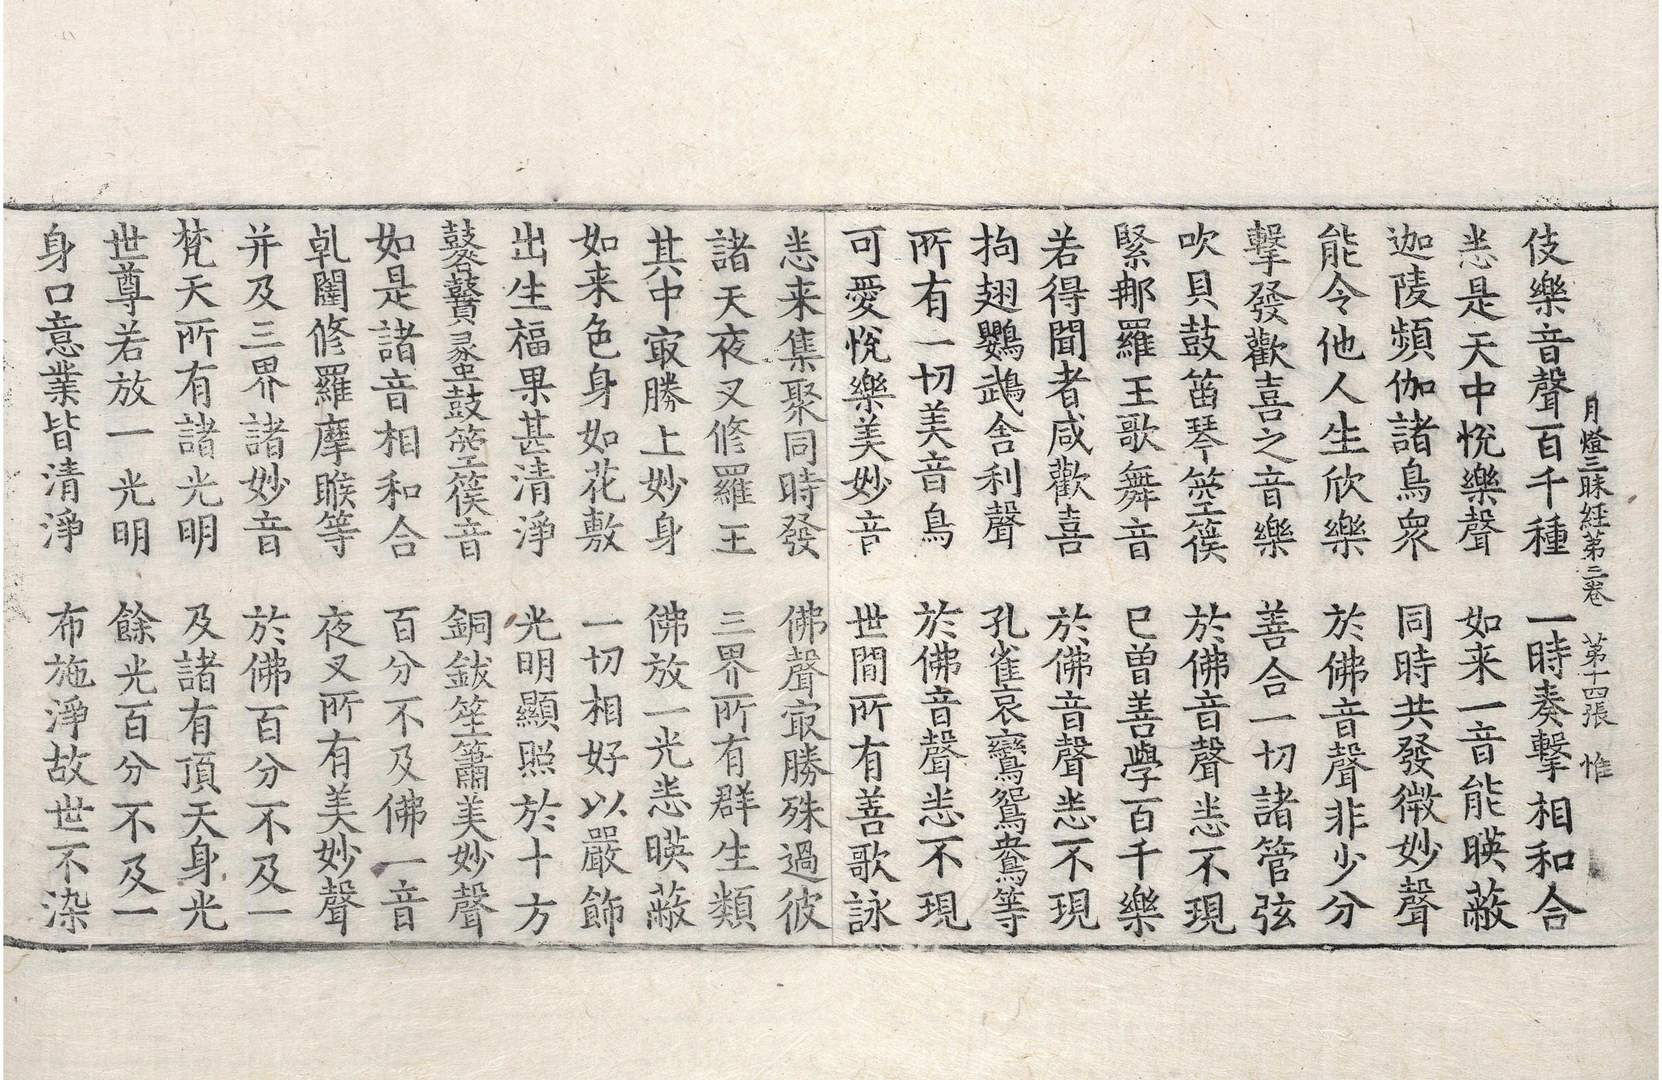 月燈三昧經第二卷　第十四張　惟
伎樂音聲百千種　一時奏擊相和合
悉是天中悅樂聲　如来一音能暎蔽
迦陵頻伽諸鳥衆　同時共發微妙聲
能令他人生欣樂　於佛音聲非少分
擊發歡喜之音樂　善合一切諸管弦
吹貝鼓笛琴箜篌　於佛音聲悉不現
緊那羅王歌舞音　已曾善學百千樂
若得聞者咸歡喜　於佛音聲悉不現
拘翅鸚鵡舍利聲　孔雀哀鸞鴛鴦等
所有一切美音鳥　於佛音聲悉不現
可愛悅樂美妙音　世間所有善歌詠
悉来集聚同時發　佛聲㝡勝殊過彼
諸天夜叉修羅王　三界所有群生類
其中㝡勝上妙身　佛放一光悉暎蔽
如来色身如花敷　一切相好以嚴飾
出生福果甚清淨　光明顯照於十方
鼛鼖鼓箜篌音　銅鈸笙簫美妙聲
如是諸音相和合　百分不及佛一音
乹闥修羅摩睺等　夜叉所有美妙聲
并及三界諸妙音　於佛百分不及一
梵天所有諸光明　及諸有頂天身光
世尊若放一光明　餘光百分不及一
身口意業皆清淨　布施淨故世不染